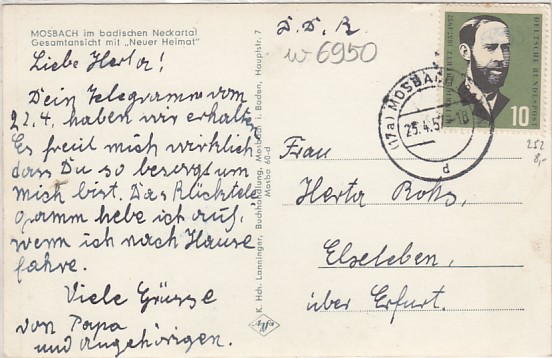 MOSBACH im badischen Neckartal
Gesamtansicht mit „Neuer Heimat"
Liebe Herta!
Dein Telegramm vom
22.4. haben wir erhalten
Es freut mich wirklich
dass Du so besorgt um
mich bist. Das Rücktele
gramm hebe ich auf,
wenn ich nach Hause
fahre.
Viele Grüsse
von Papa
und angehörigen.
K. Hch. Lanninger, Buchhandlung, Mosbach i. Baden, Hauptstr. 7
Mosba 60-d
D.D.R.
w 6950
(17a) MOSBACH
25.4.57
d
DEUTSCHE BUNDESPOST
10
252
8,-
Frau
Herta Rohs,
Elxleben,
über Erfurt.